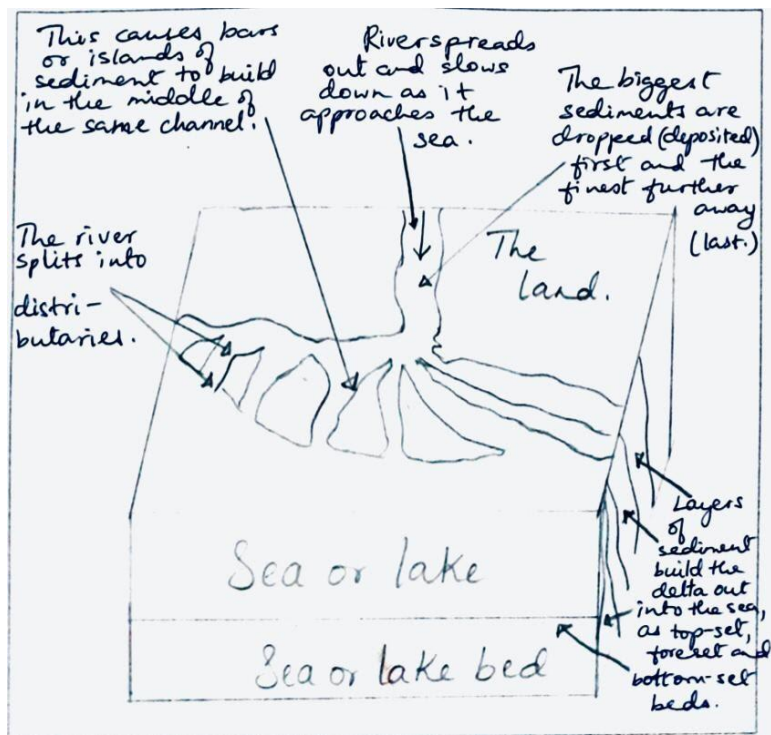 This causes bars
or islands of
sediment to build
in the middle of
the same channel.
River spreads
out and slows
down as it
approaches the
sea.
The biggest
sediments are
dropped (deposited)
first and the
finest further
away
(last.)
The river
splits into
distri-
butaries.
The
land.
Layers
of
sediment
build the
delta out
into the sea,
as top-set,
foreset and
bottom-set
beds.
Sea or lake
Sea or lake bed